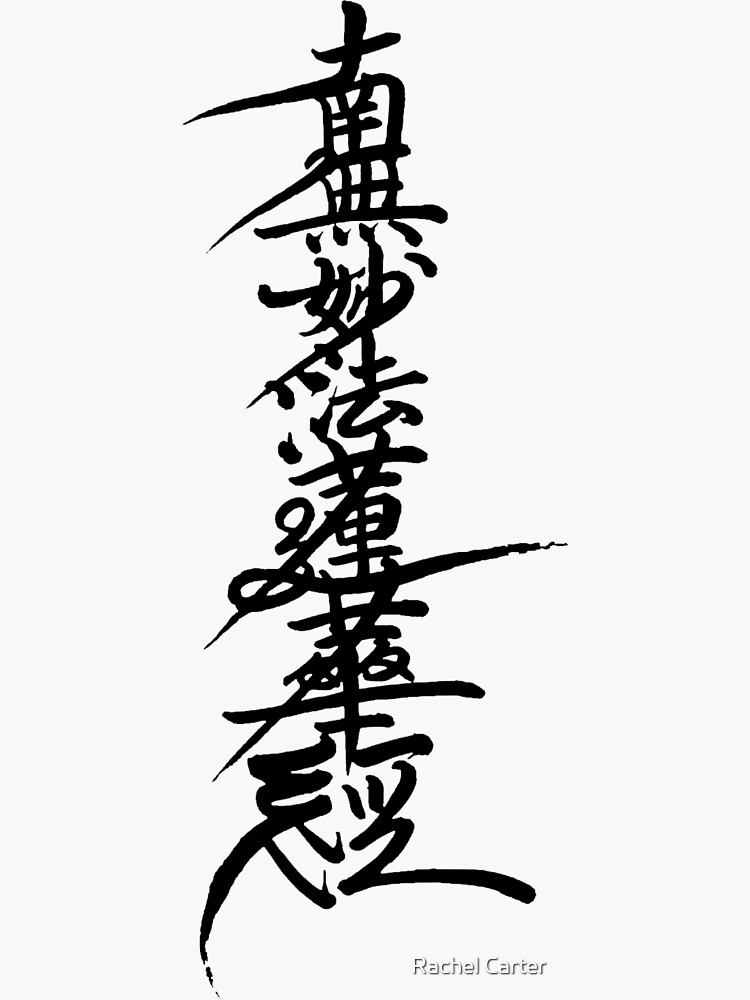 南無妙法蓮華經
Rachel Carter